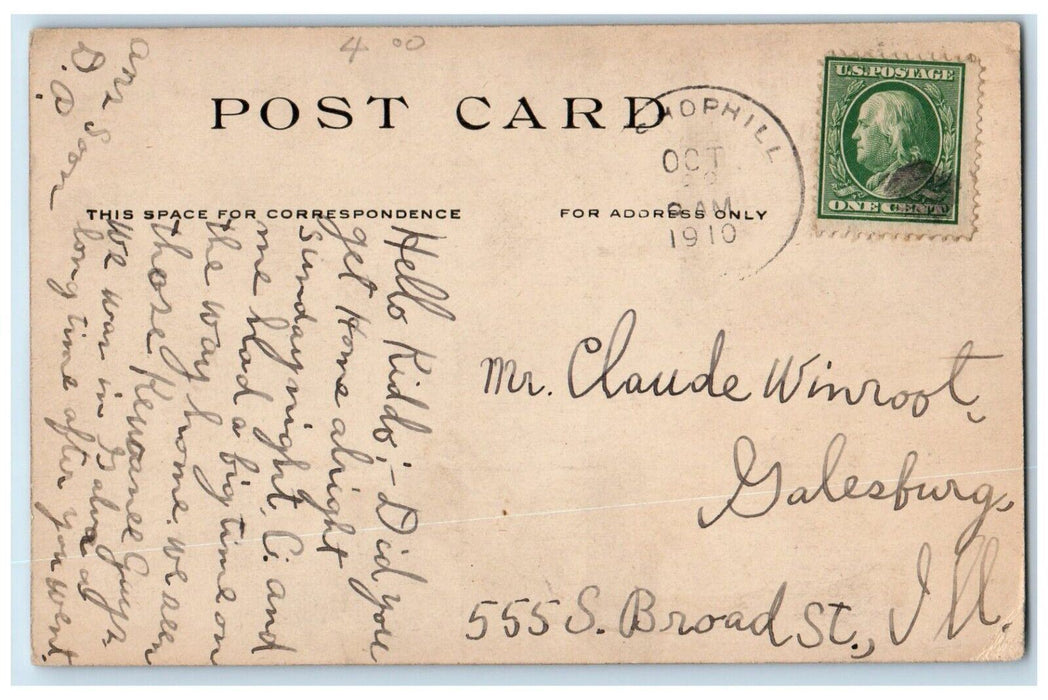 4 00
POST CARD
THIS SPACE FOR CORRESPONDENCE
FOR ADDRESS ONLY
U.S.POSTAGE
ONE CENT
HOPHILL
OCT
AM
1910
Hello Kiddo;- Did you
get Home alright
Sunday night, C. and
me had a big time on
the way home. we seen
those Kewanee Guys
we was in Galva a
long time after you went
ans soon
D.A.
Mr. Claude Winroot,
Galesburg,
555 S. Broad St., Ill.